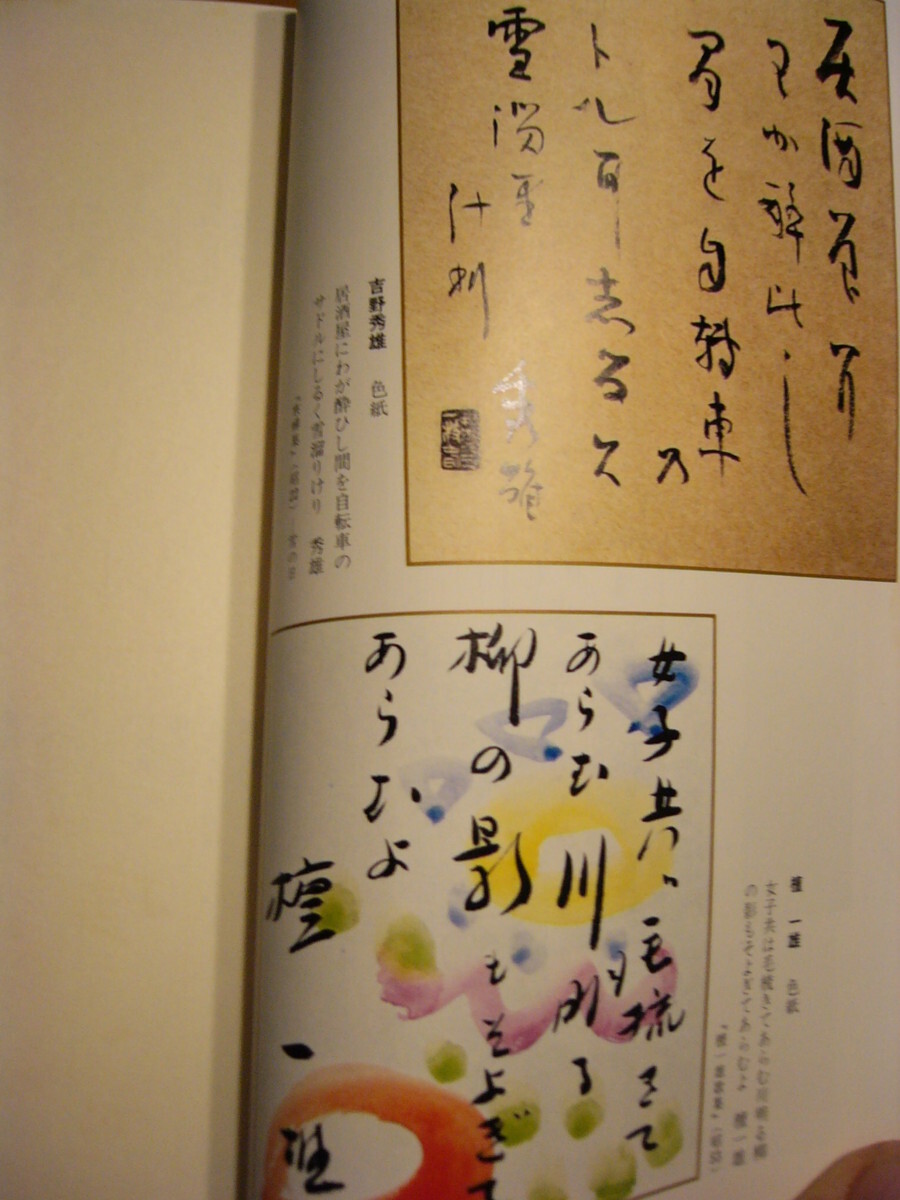 居酒屋尓
わか酔比し
間を自轉車の
ドル耳志る久
雪溜里
計利
秀雄
吉野秀雄 色紙
居酒屋にわが酔ひし間を自転車の
サドルにしるく雪溜りけり 秀雄
女子共は毛梳きて
あらむ川明る
柳の影もそよぎて
あらむよ
檀一雄
檀一雄 色紙
女子共は毛梳きてあらむ川明る柳
の影もそよぎてあらむよ 檀一雄
『檀一雄歌集』